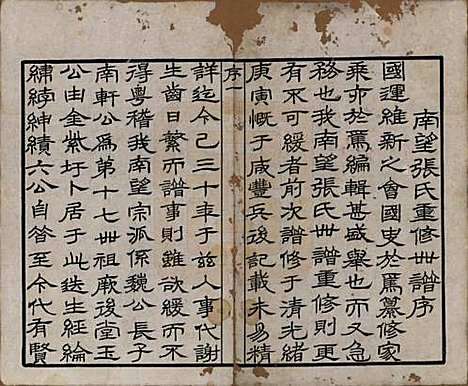 南望張氏重修世譜序
國運維新之會國史於焉纂修家
乘亦於焉編輯甚盛舉也而又急
務也我南望張氏世譜重修則又
有不可緩者前次譜修于清光緒
庚寅慨于咸豐兵後記載未易精
序一
詳迄今已三十年于兹人事代謝
生齒日繁而譜事則雖欲緩而不
得粵稽我南望宗派係魏公長子
南軒公為第十七世祖厥後堂玉
公由金紫圩卜居于此迭生經綸
繡綍紳績六公自昝至今代有賢